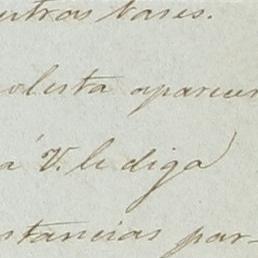 utras bases.
olesta aparecer
á V. le diga
stancias par-